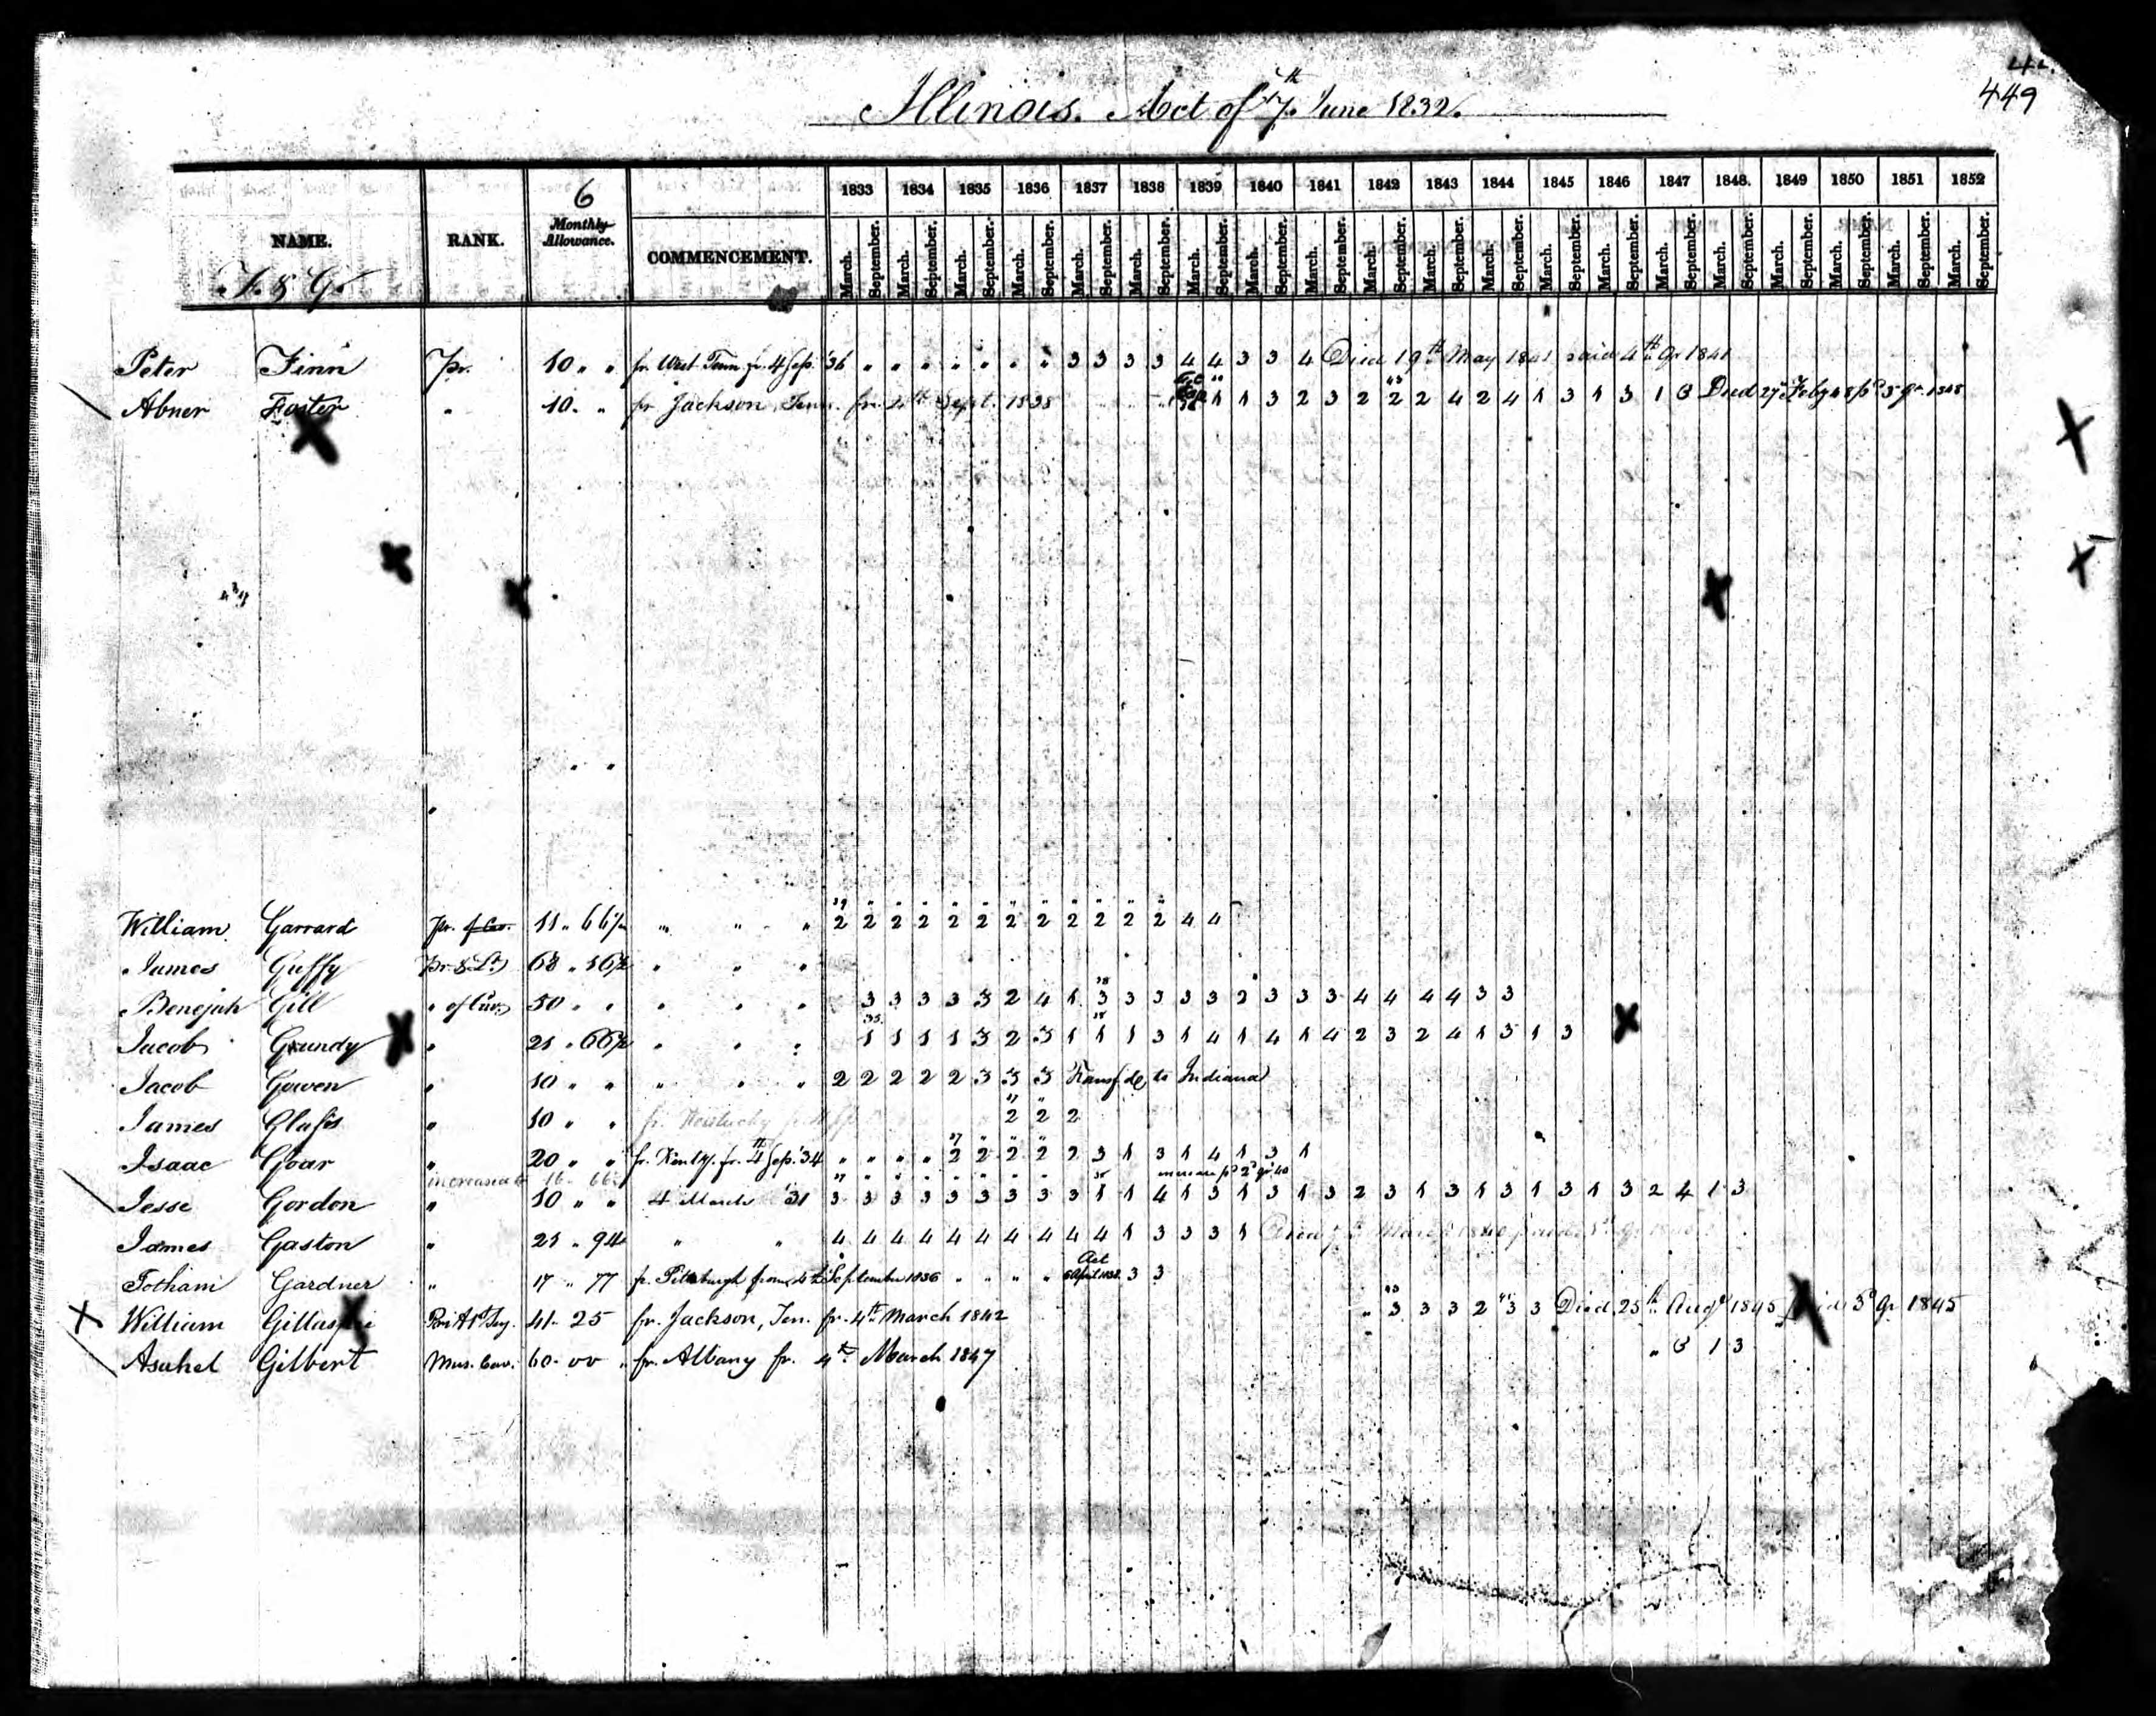 449
Illinois. Act of 7th June 1832.
1833 1834 1835 1836 1837 1838 1839 1840 1841 1842 1843 1844 1845 1846 1847 1848. 1849 1850 1851 1852
NAME. RANK. 6 Monthly Allowance. COMMENCEMENT. March. September. March. September. March. September. March. September. March. September. March. September. March. September. March. September. March. September. March. September. March. September. March. September. March. September. March. September. March. September. March. September. March. September. March. September. March. September. March. September.
F. & G.
Peter Finn Pr. 10 " " fr. West Tenn fr. 4 Sep. '36 " " " " " " " 3 3 3 3 4 4 3 3 4 Died 19th May 1841 paid 4th Qr 1841
Abner Foster " 10 . " fr. Jackson, Tenn. fr. 4th Sept. 1838 1 1 3 2 3 2 2 2 4 2 4 1 3 1 3 1 3 Died 27 Feby 48 pd 3 qr. 1848
William Garrard Pr. of Cav. 11 " 66 " " " 2 2 2 2 2 2 2 2 2 2 2 2 4 4
James Guffy Pr. & Lt. 68 " 16 " " "
Benejah Gill " of Cav. 50 " " " " " 3 3 3 3 3 2 4 1 3 3 3 3 3 2 3 3 3 4 4 4 4 3 3
Jacob Grundy " 21 " 66 " " " 1 1 1 1 3 2 3 1 1 1 3 1 4 1 4 1 4 2 3 2 4 1 3 1 3
Jacob Gowen " 10 " " " " " 2 2 2 2 2 3 3 3 Transfd. to Indiana
James Glass " 10 " " fr. Kentucky 2 2 2
Isaac Goar " 20 " " fr. Kenty. fr. 4th Sep. '34 " " " " 2 2 2 2 2 3 1 3 1 4 1 3 1
increased to 16 . 66 increase pd 2d qr 40
Jesse Gordon " 10 " " 4 March '31 3 3 3 3 3 3 3 3 3 1 1 4 1 3 1 3 1 3 2 3 1 3 1 3 1 3 1 3 2 4 1 3
James Gaston " 21 " 94 " " 4 4 4 4 4 4 4 4 4 4 1 3 3 3 1 Died 7th March 1840
Jotham Gardner " 17 " 77 fr. Pittsburgh from 4th September 1836 " " " " Act 6 April 1838. 3 3
William Gillaspie 41 - 25 fr. Jackson, Ten. fr. 4th March 1842 " 3 3 3 2 3 3 Died 25th Augt 1845 paid 3d Qr 1845
Asahel Gilbert Mus. Cav. 60 - 00 " fr. Albany fr. 4th March 1847 " 3 1 3